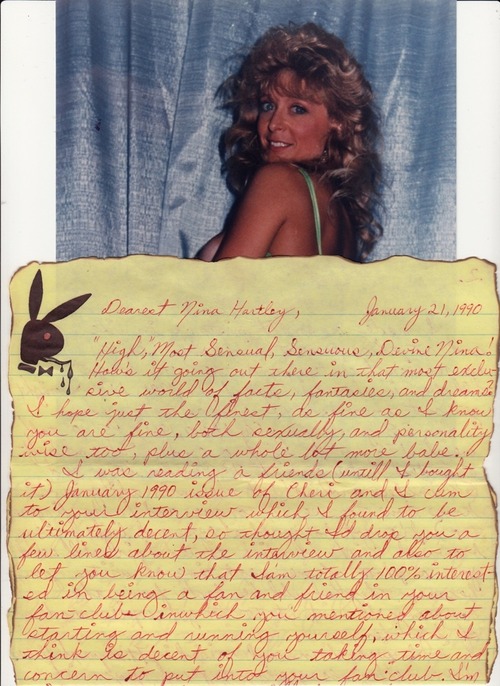 Dearest Nina Hartley, January 21, 1990
"High," Most Sensual, Sensuous, Devine Nina!
How's it going out there in that most exclu-
sive world of facts, fantasies, and dreams
I hope just the finest, as fine as I know
you are fine, both sexually, and personality
wise too, plus a whole lot more babe.
I was reading a friends (untill I bought
it) January 1990 issue of Cheri and I cum
to your interview which I found to be
ultimately decent, so thought I'd drop you a
few lines about the interview and also to
let you know that I'am totally 100% interest-
ed in being a fan and friend in your
fan-club inwhich you mentioned about
starting and running yourself, which I
think is decent of you taking time and
concern to put into your fan club. I'm